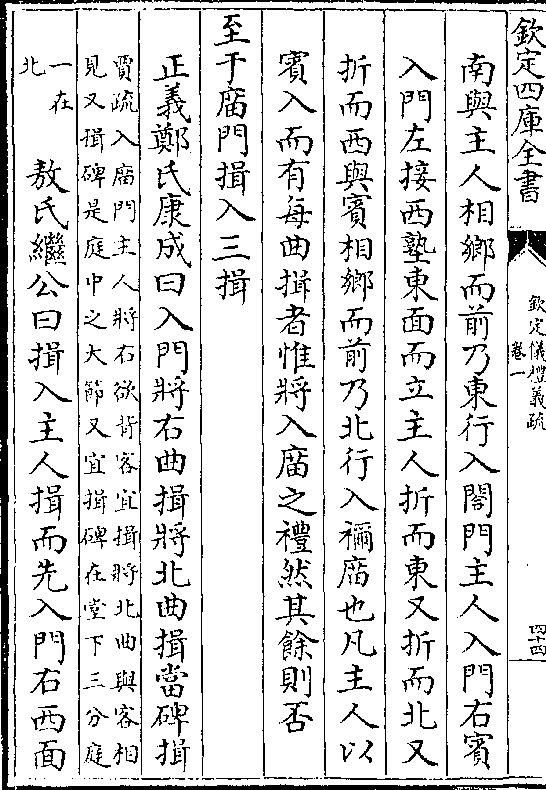 欽定四庫全書
欽定儀禮義疏
卷一
四十四
南與主人相鄉而前乃東行入閤門主人入門右賓
入門左接西塾東面而立主人折而東又折而北又
折而西與賓相鄉而前乃北行入禰庿也凡主人以
賓入而有每曲揖者惟將入庿之禮然其餘則否
至于庿門揖入三揖
正義鄭氏康成曰入門將右曲揖將北曲揖當碑揖
賈疏入庿門主人將右欲背客宜揖將北曲與客相
見又揖碑是庭中之大節又宜揖碑在堂下三分庭
一在
北
敖氏繼公曰揖入主人揖而先入門右西面